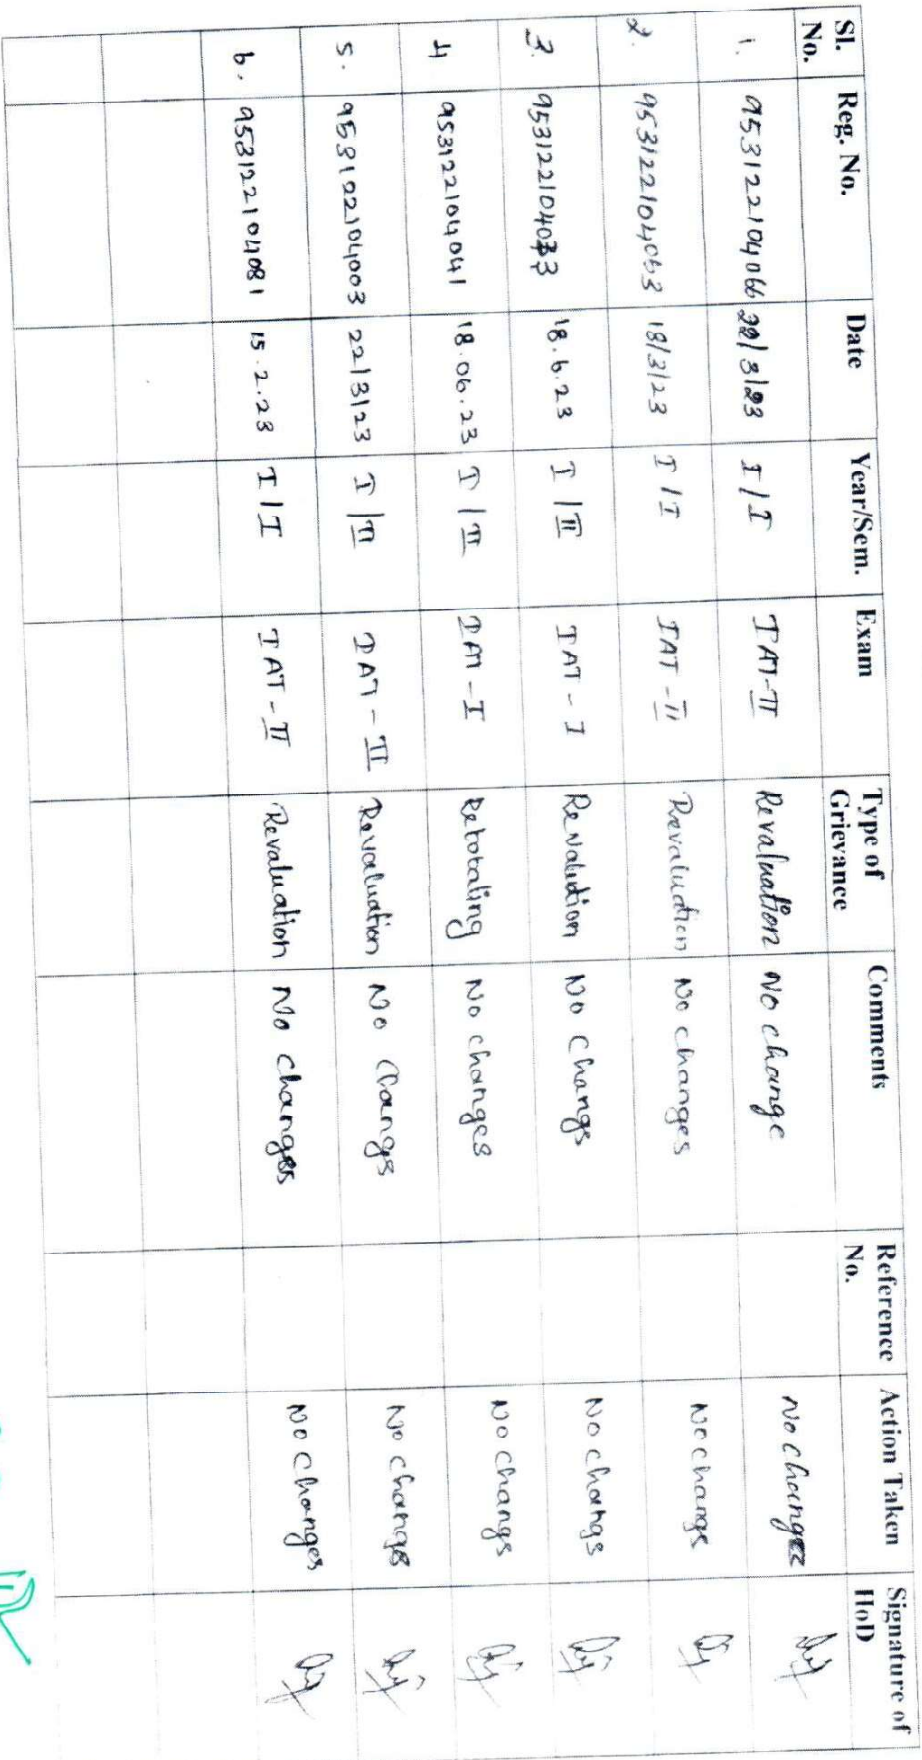 Sl. No. Reg. No. Date Year/Sem. Exam Type of Grievance Comments Reference No. Action Taken Signature of HoD
1. 953122104066 22/3/23 I/I IAT-II Revaluation No change No changes
2. 953122104053 18/3/23 I/I IAT-II Revaluation No changes No changs
3. 953122104033 18.6.23 I/II IAT-I Revalution No Changs No changs
4 953122104041 18.06.23 I/II IAT-I Retotaling No changes No changs
5. 953122104003 22/3/23 I/II IAT-II Revaluation No Changs No changs
6. 953122104081 15.2.23 I/I IAT-II Revaluation No changes No changes